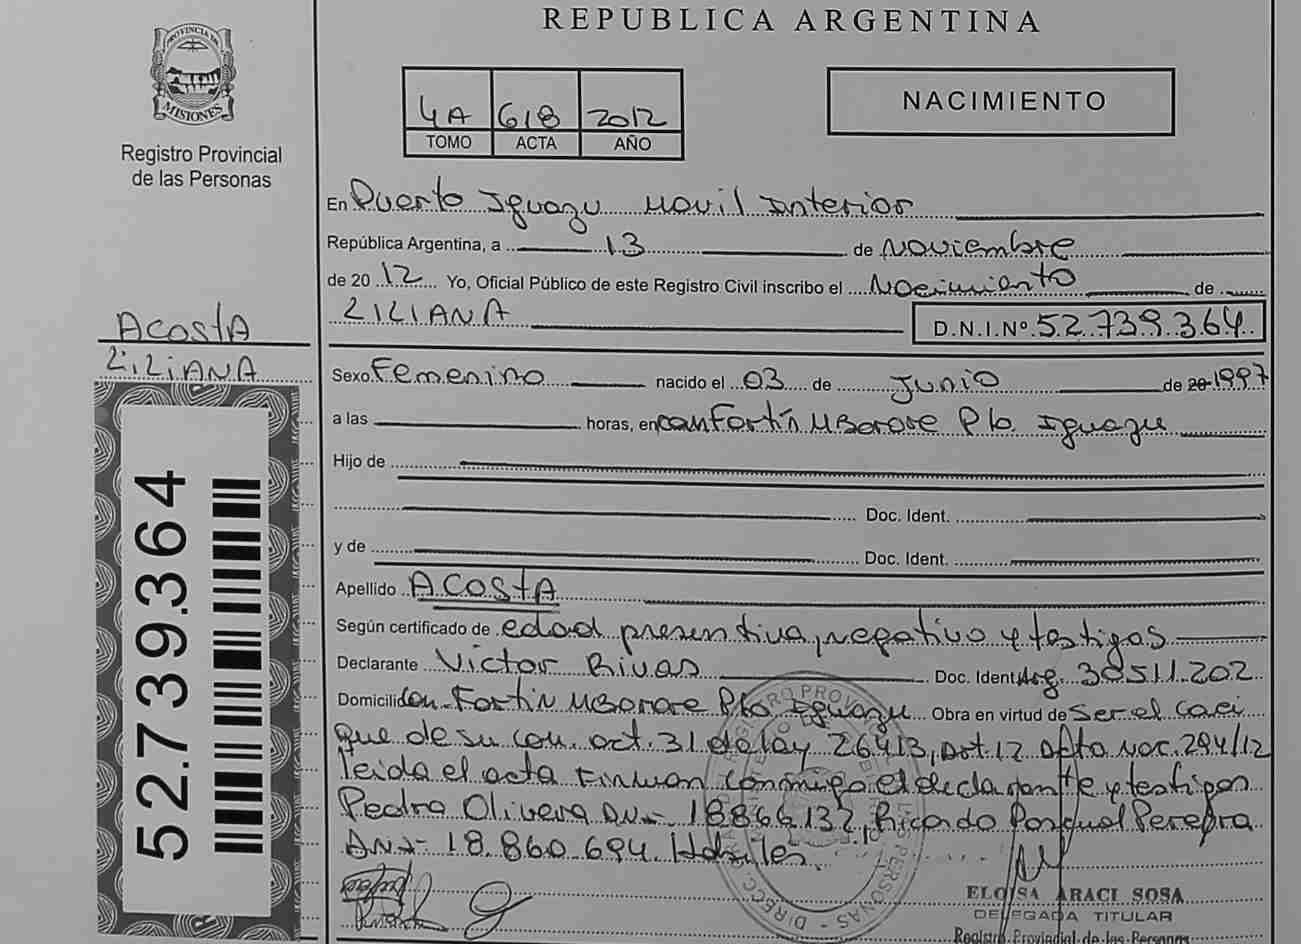 REPUBLICA ARGENTINA
PROVINCIA DE
MISIONES
Registro Provincial
de las Personas
4A 618 2012
TOMO ACTA AÑO
NACIMIENTO
En Puerto Iguazu Movil Interior
República Argentina, a 13 de Noviembre
de 2012 Yo, Oficial Público de este Registro Civil inscribo el Nacimiento de
LILIANA D.N.I.Nº 52.739.364
ACOSTA
LILIANA
Sexo Femenino nacido el 03 de Junio de 20 1997
a las horas, en Com Fortín MBorore Pto. Iguazu
Hijo de
Doc. Ident.
y de Doc. Ident.
Apellido ACOSTA
Según certificado de edad presuntiva, negativo y testigos
Declarante Victor Rivas Doc. Ident Arg. 30511.202
Domicilio Com. Fortín MBorore Pto Iguazu Obra en virtud de Ser el Caci
que de su com. art. 31 de ley 26413, art. 12 Dcto Nac. 294/12
leida el acta Firman conmigo el declarante y testigos
Pedro Olivera DNI- 18866132, Ricardo Pereyra
DNI- 18.860.694. Habiles
52.739.364
ELOISA ARACI SOSA
DELEGADA TITULAR
Registro Provincial de las Personas